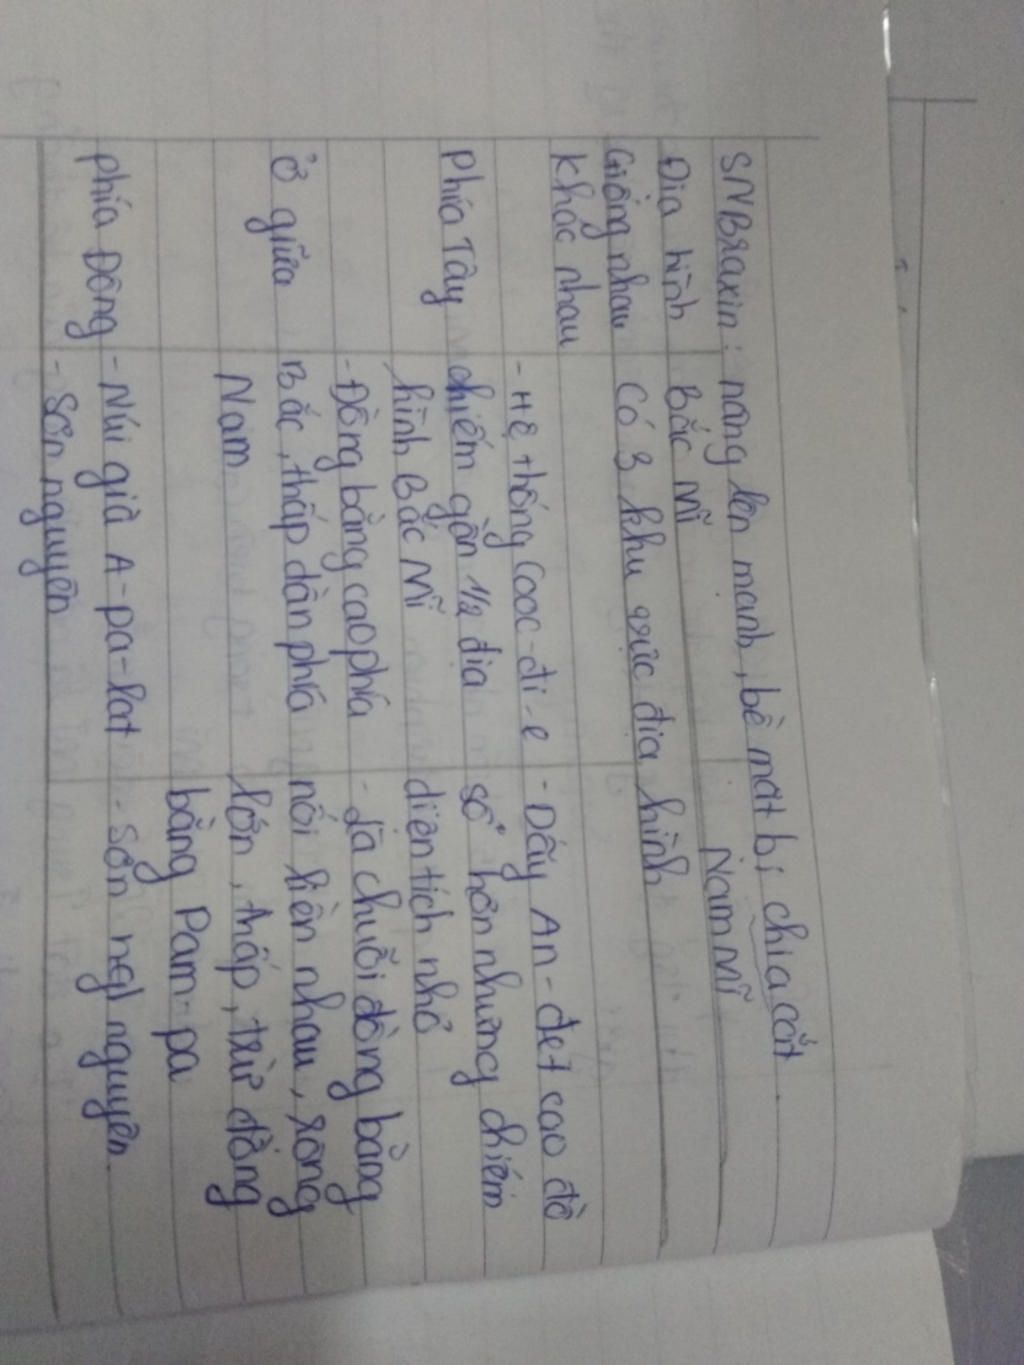 SN Braxin: nâng lên mạnh, bề mặt bị chia cắt.
Địa hình Bắc Mĩ Nam Mĩ
Giống nhau Có 3 khu vực địa hình
Khác nhau
- Hệ thống Cooc-đi-e - Dãy An-đet cao đồ
Phía Tây chiếm gần 1/2 địa sộ hơn nhưng chiếm
hình Bắc Mĩ diện tích nhỏ
- Đồng bằng cao phía - Là chuỗi đồng bằng
Ở giữa Bắc, thấp dần phía nối liền nhau, rộng
Nam lớn, thấp, trừ đồng
bằng Pam-pa
Phía Đông - Núi già A-pa-lat - Sơn ng nguyên
- Sơn nguyên